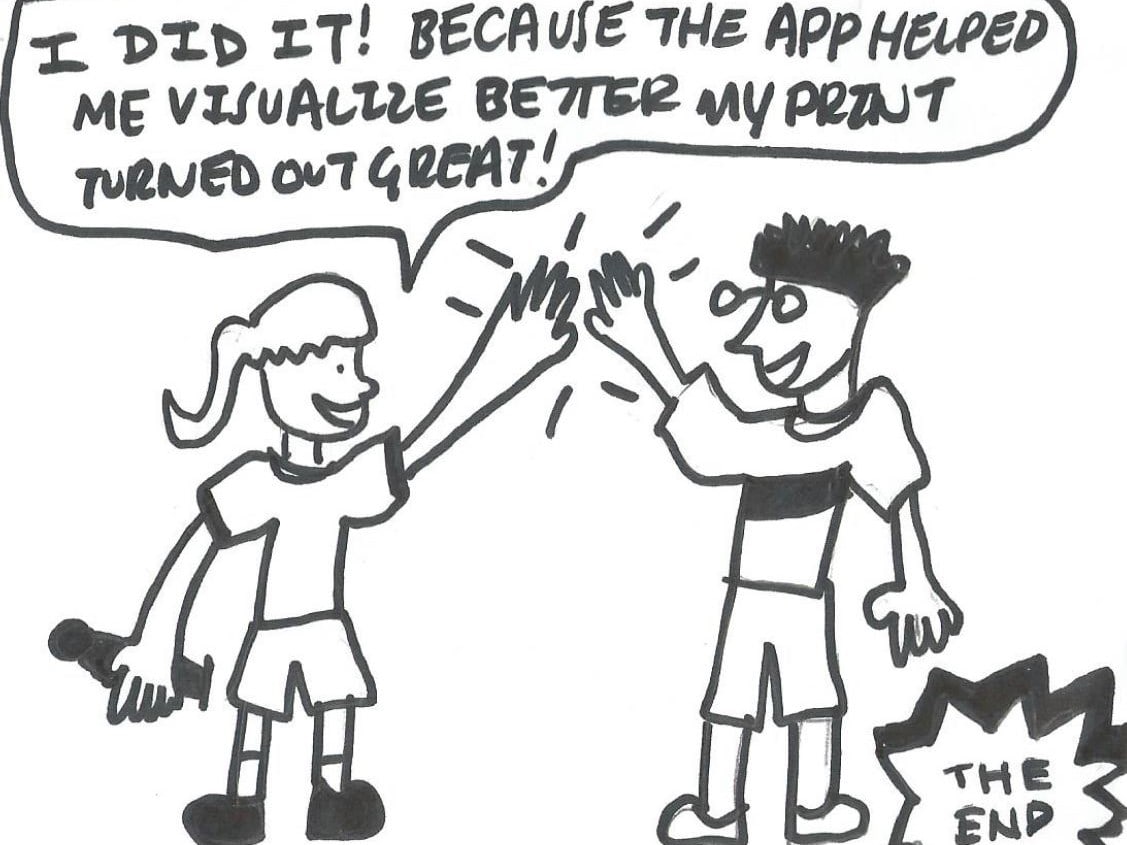 I DID IT! BECAUSE THE APP HELPED
ME VISUALIZE BETTER MY PRINT
TURNED OUT GREAT!
THE
END